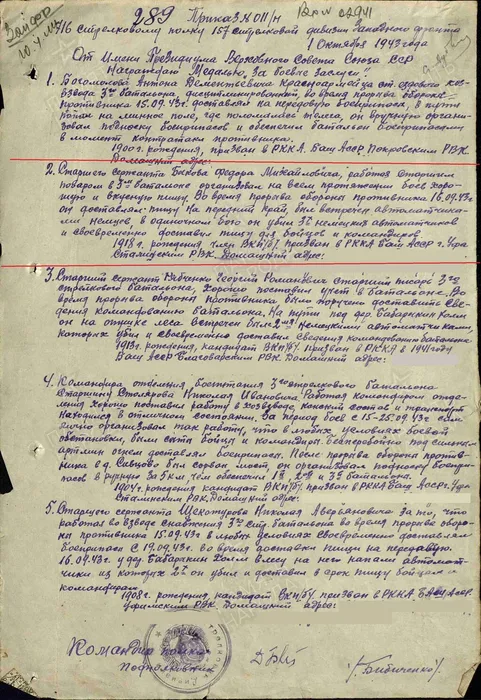 289 Приказ № 011/н
716 стрелковому полку 157 стрелковой дивизии Западного фронта
1 октября 1943 года
От Имени Президиума Верховного Совета Союза ССР
Награждаю Медалью „За боевые заслуги“:
1. Красноармейца
взвода 3го батальона, во время прорыва обороны
противника 15.09.43г. доставлял на передовую боеприпасы, в пути
попал на минное поле, где поломалась телега, он вручную органи-
зовал подноску боеприпасов и обеспечил батальон боеприпасами,
в момент контратак противника.
1900г. рождения, призван в РККА. Баш АССР Покровским РВК.
Домашний адрес:
2. Старшего сержанта Бекова Федора Михайловича, работая старшим
поваром в 3м батальоне организовал на всем протяжении боев хоро-
шую и вкусную пищу. Во время прорыва обороны противника 16.09.43г.
он доставлял пищу на передний край, был встречен автоматчика-
ми немцев, в одиночном бою он убил 3х немецких автоматчиков
и своевременно доставил пищу для бойцов и командиров.
1918г. рождения член ВКП/б/, призван в РККА Баш АССР г. Уфа
Сталинским РВК. Домашний адрес:
3. Старший сержант Рябченко Георгий Романович старший писарь 3го
стрелкового батальона, хорошо поставил учет в батальоне. Во
время прорыва обороны противника было поручено доставить све-
дения командованию батальона. На пути под дер. Бабаркин Холм
он на опушке леса встречен был 2мя немецкими автоматчиками,
которых убил и своевременно доставил сведения командованию батальона
1913г. рождения, кандидат ВКП/б/, призван в РККА в 1941 году
Баш АССР Благоварским РВК. Домашний адрес:
4. Командира отделения боепитания 3го стрелкового батальона
Старшину Столярова Николая Ивановича. Работая командиром отде-
ления хорошо поставил работу в хозвзводе, конский состав и транспорт
находился в отличном состоянии. За период боев с 15-25.09.43г. сам
лично организовал так работу, что в любых условиях боевой
обстановки, были сыты бойцы и командиры бесперебойно под сильным
артмин огнем доставлял боеприпасы. После прорыва обороны против-
ника в д. был сорван мост, он организовал подноску боепри-
пасов в ручную за 5 км. чем обеспечил 1й, 2й и 3й батальоны.
1904г. рождения, кандидат ВКП/б/ призван в РККА Баш АССР г. Уфа
Сталинским РВК. Домашний адрес:
5. Старшего сержанта Щекотурова Николая Аверьяновича за то, что
работая во взводе снабжения 3го стр. батальона во время прорыва оборо-
ны противника 15.09.43г. в любых условиях своевременно доставлял
боеприпасы. С 19.09.43г. во время доставки пищи на передовую.
16.09.43г. у дер. Бабаркин Холм в лесу на него напали автомат-
чики из которых 2х он убил и доставил в срок пищу бойцам и
командирам.
1908г. рождения, кандидат ВКП/б/ призван в РККА Баш АССР
Уфимским РВК. Домашний адрес:
Командир полка
Подполковник
/Бибиченко/